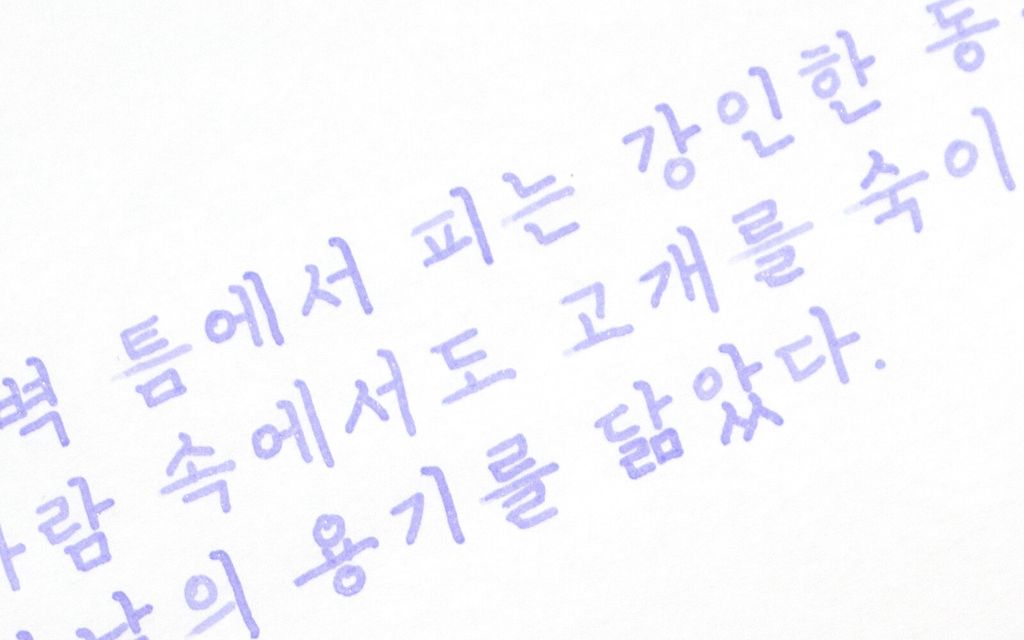 벽 틈에서 피는 강인한
속에서도 고개를 숙이
용기를 닮았다.